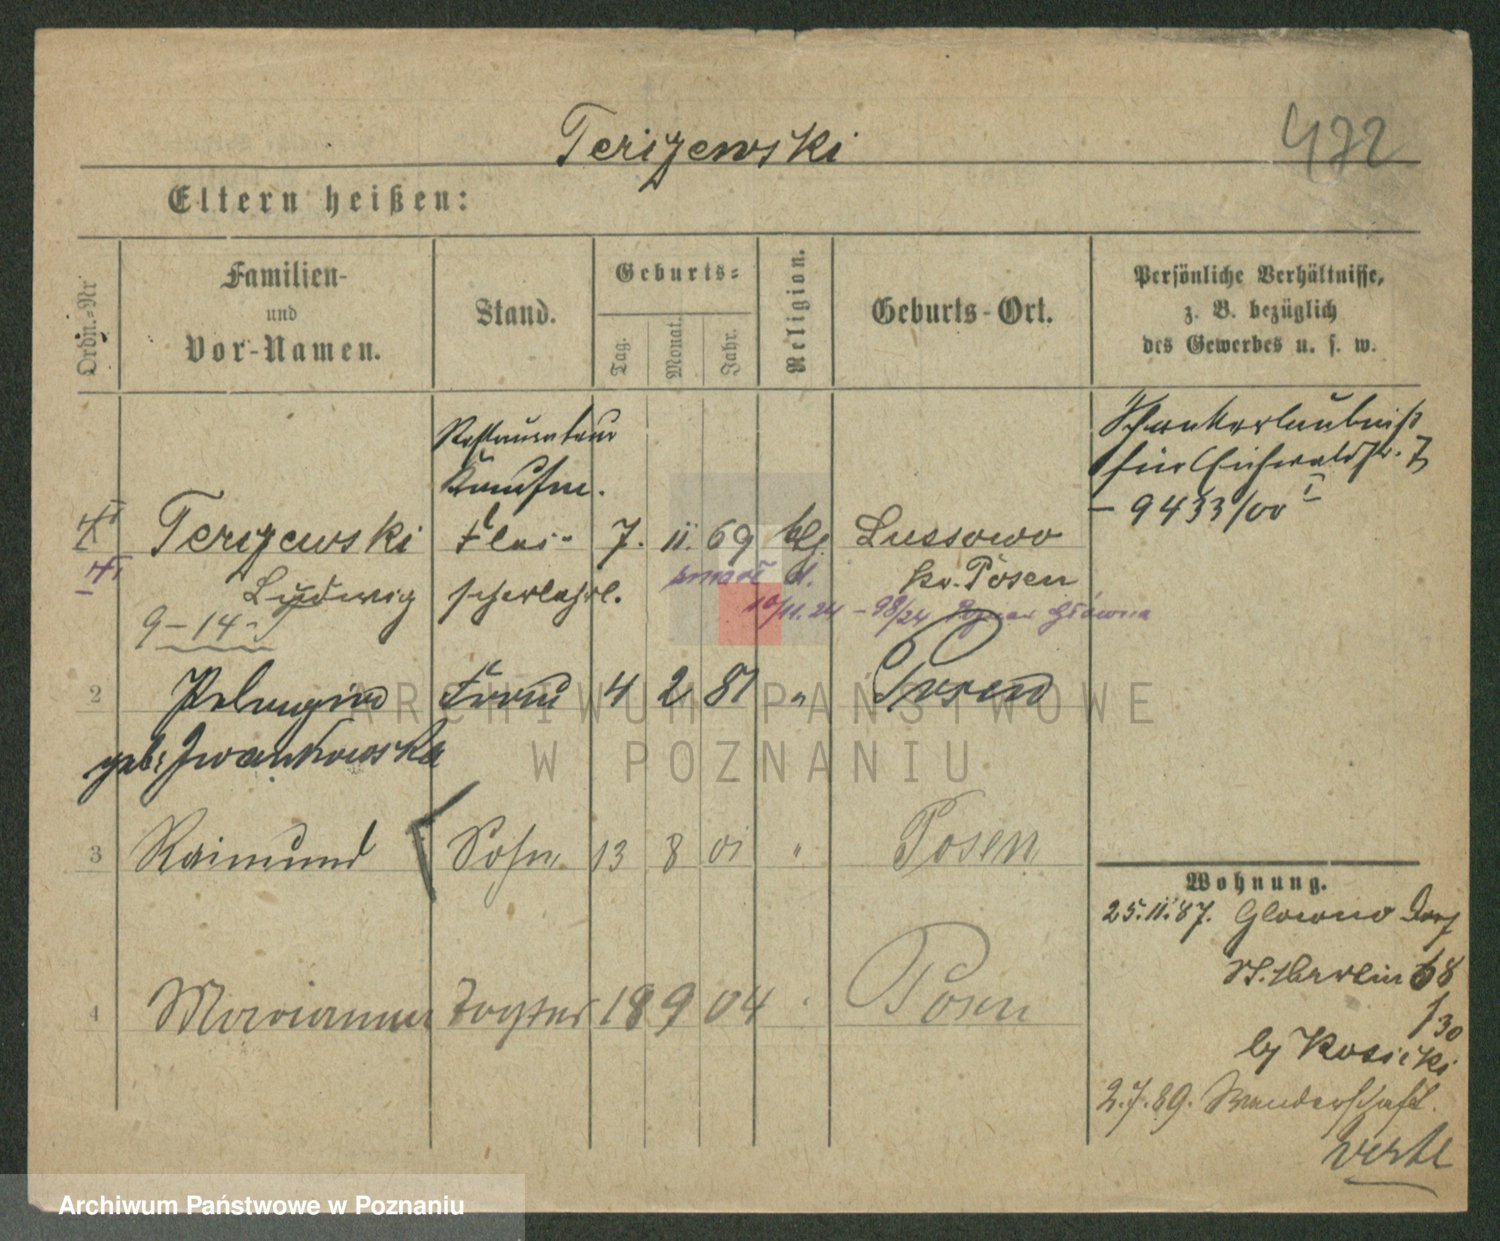 Terizewski
Eltern heißen:
Ordn.-Nr
Familien-
und
Vor-Namen.
Stand.
Geburts-
Tag.
Monat.
Jahr.
Religion.
Geburts-Ort.
Persönliche Verhältnisse,
z. B. bezüglich
des Gewerbes u. s. w.
Restaurateur
Kaufm.
Schankerlaubniß
für Eichwaldstr. 7
- 9433/00 I
Terizewski Flei- 7. 11. 69 Lussowo
Ludwig scherlehrl. Kr. Posen
zmarł d.
10/11. 24 - 98/24 Poznań Główna
9-14
2 Pelagia Frau 4 2 81 " Posen
geb. Iwankowska
3 Raimund Sohn 13 8 01 " Posen
4 Marianna Tochter 18 9 04 " Posen
Wohnung.
25.11.87. Glowno Dorf
St. Martin 68
by Kosicki
2.7.89. Wanderschaft.
verte
ARCHIWUM PAŃSTWOWE
W POZNANIU
Archiwum Państwowe w Poznaniu